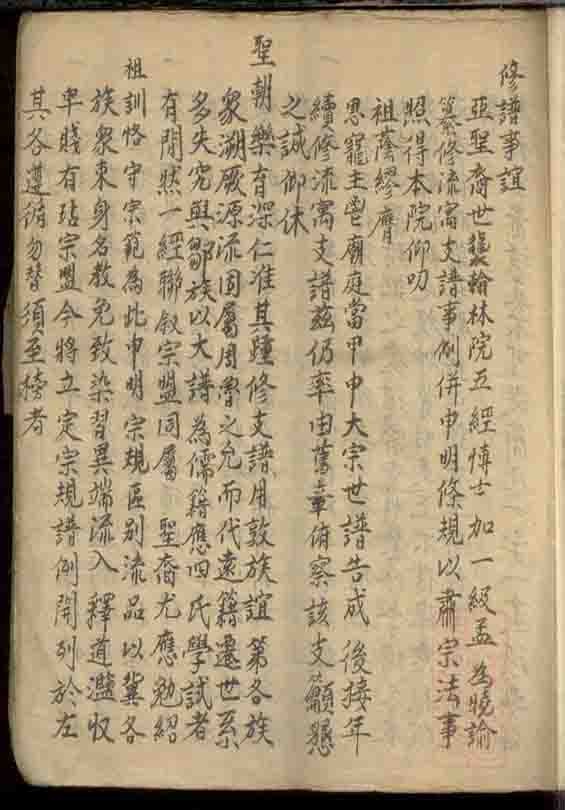 修譜事誼
亞聖裔世襲翰林院五經博士加一級孟 為曉諭
纂修流寓支譜事例併申明條規以肅宗法事
照得本院仰叨
祖蔭繆膺
恩寵主鬯廟庭當甲申大宗世譜告成後接年
續修流寓支譜茲仍率由舊章俯察該支籲懇
之誠仰体
聖朝樂育深仁准其踵修支譜用敦族誼第各族
衆溯厥源流固屬周魯之允而代遠籍遷世系
多失究與鄒族以大譜為儒籍應四氏學試者
有間然一經聯叙宗盟同屬 聖裔尤應勉紹
祖訓恪守宗範為此申明宗規區别流品以冀各
族衆束身名教免致染習異端流入釋道濫收
卑賤有玷宗盟今將立定宗規譜例開列於左
其各遵循勿替須至榜者